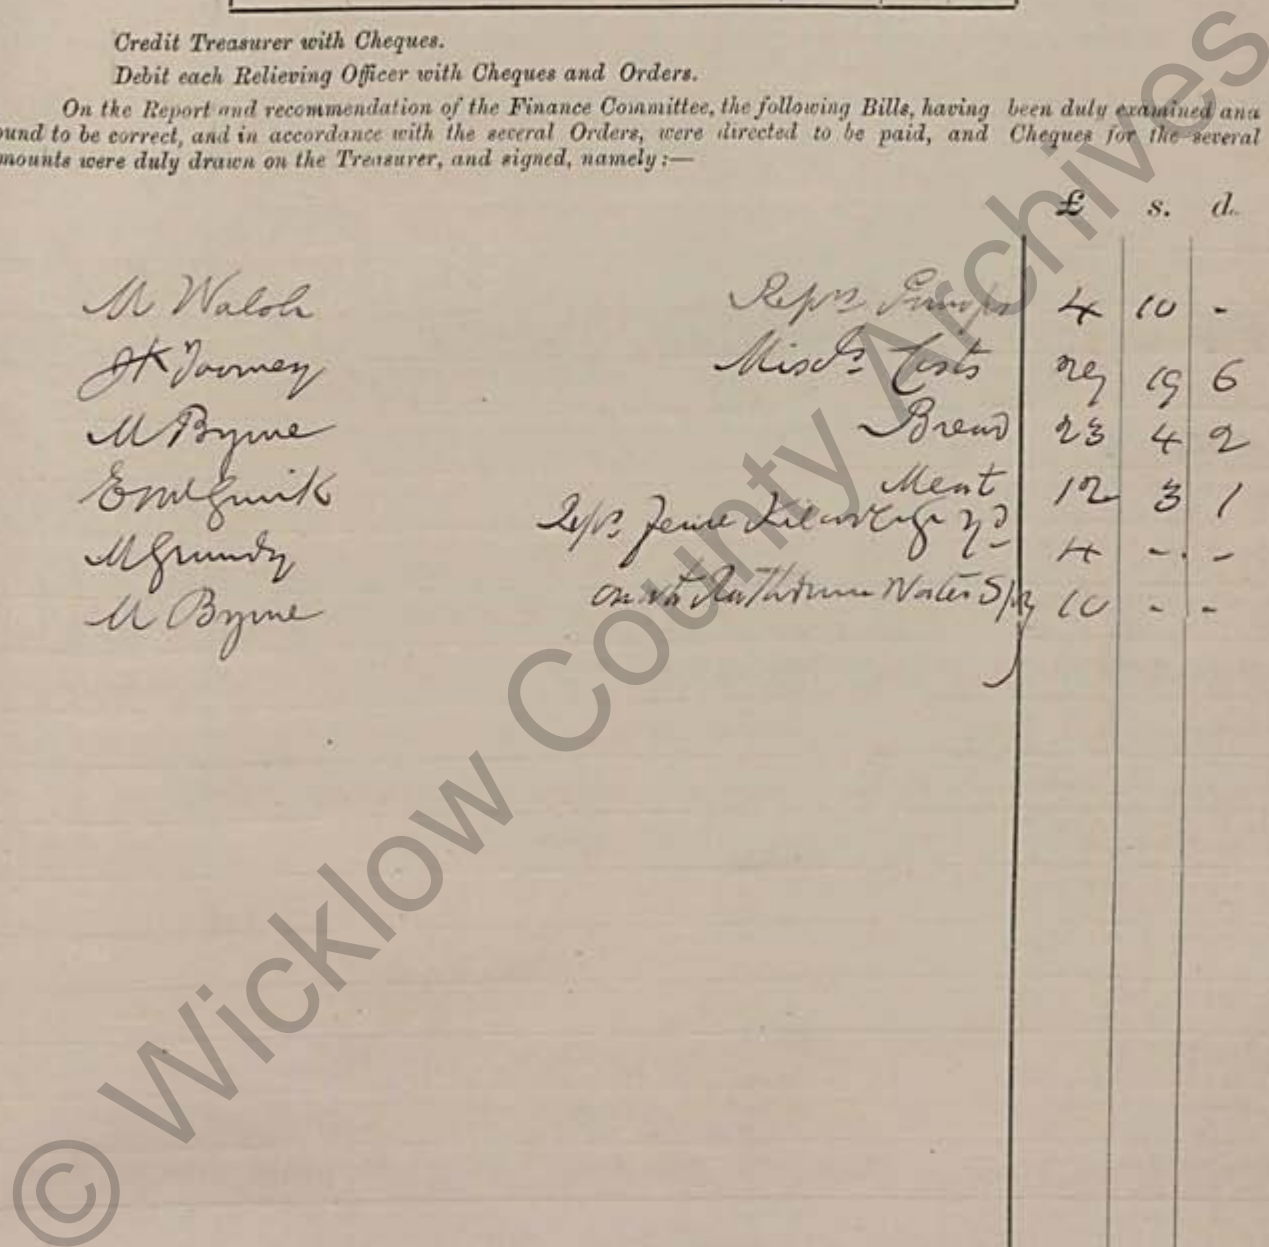 Credit Treasurer with Cheques.
Debit each Relieving Officer with Cheques and Orders.
On the Report and recommendation of the Finance Committee, the following Bills, having been duly examined and
ound to be correct, and in accordance with the several Orders, were directed to be paid, and Cheques for the several
mounts were duly drawn on the Treasurer, and signed, namely:—
£ s. d.
M Walsh Reprs Pumps 4 10 -
JK Toomey Misc. Costs 29 19 6
M Byrne Bread 23 4 2
Meat 12 3 1
M Grundy Reprs 4 - -
M Byrne Rathdrum Water 10 - -
© Wicklow County Archives